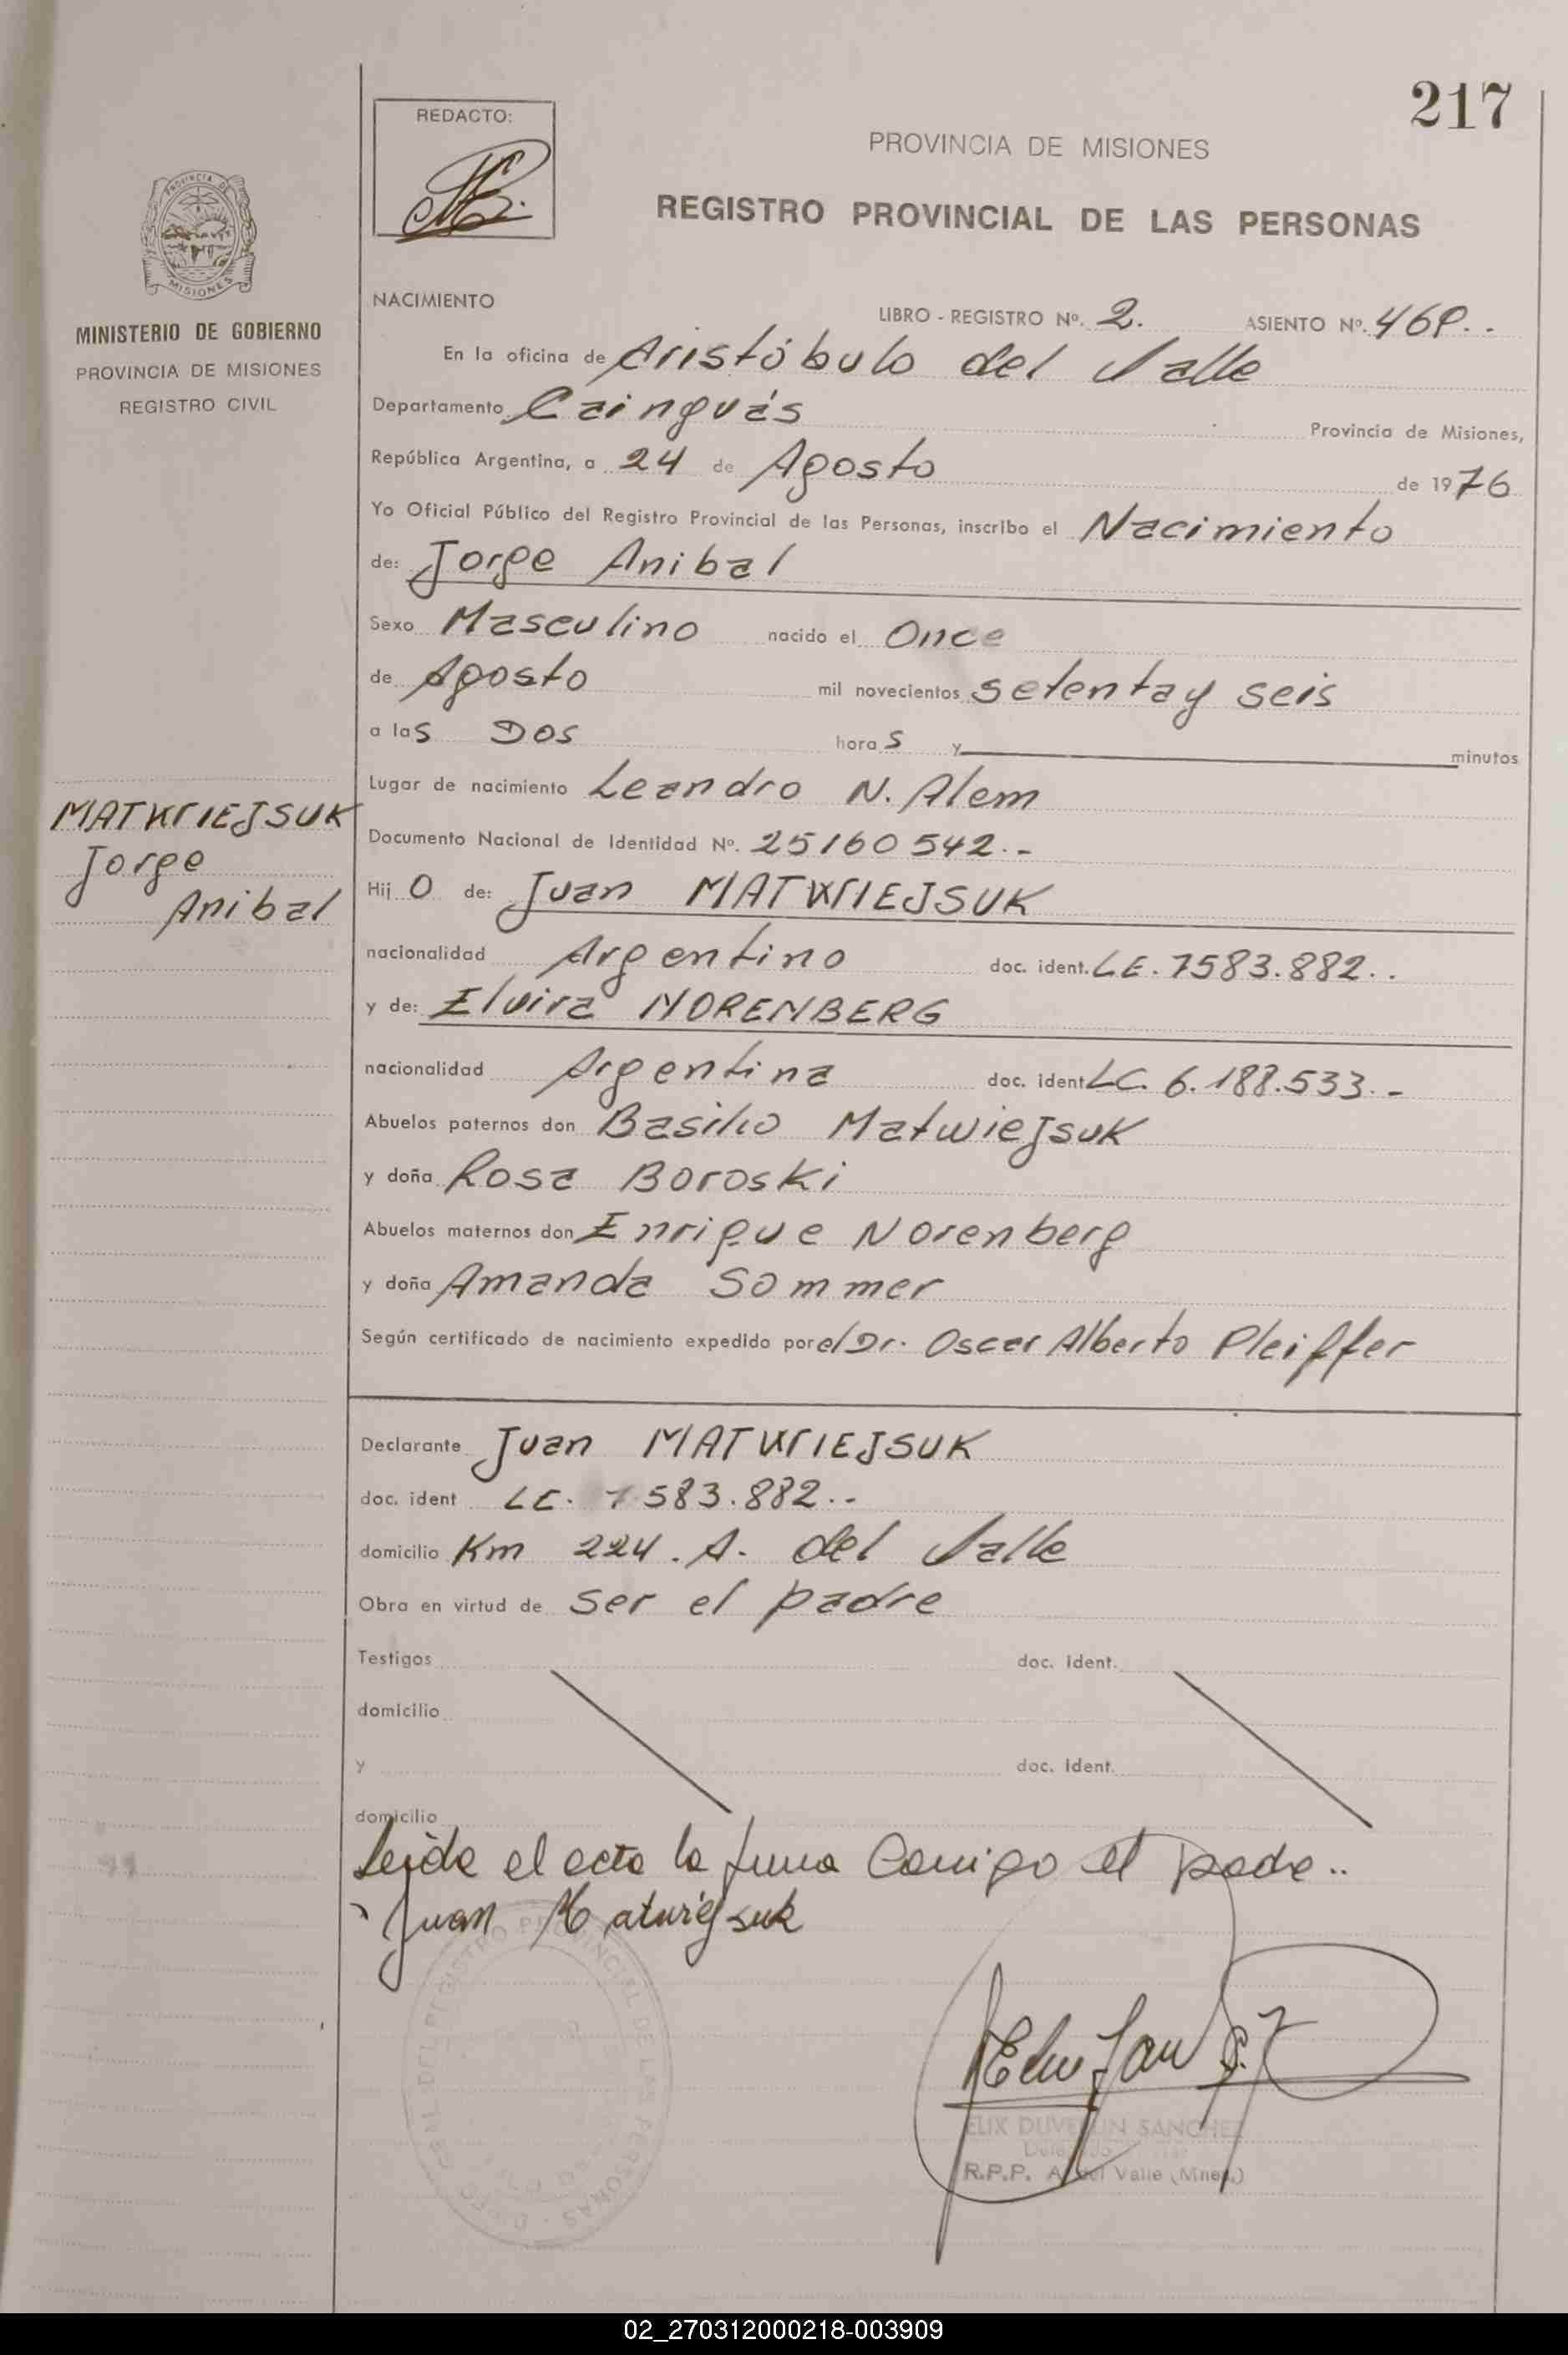 217
REDACTO:
PROVINCIA DE MISIONES
REGISTRO PROVINCIAL DE LAS PERSONAS
PROVINCIA DE MISIONES
MINISTERIO DE GOBIERNO
PROVINCIA DE MISIONES
REGISTRO CIVIL
MATWIEJSUK
Jorge
Anibal
NACIMIENTO
LIBRO - REGISTRO Nº. 2. ASIENTO Nº. 469..
En la oficina de Aristóbulo del Valle
Departamento Cainguás Provincia de Misiones,
República Argentina, a 24 de Agosto de 1976
Yo Oficial Público del Registro Provincial de las Personas, inscribo el Nacimiento
de: Jorge Anibal
Sexo Masculino nacido el Once
de Agosto mil novecientos setenta y seis
a las Dos horas y minutos
Lugar de nacimiento Leandro N. Alem
Documento Nacional de Identidad Nº. 25160542.-
Hijo de: Juan MATWIEJSUK
nacionalidad Argentino doc. ident. LE. 7583.882..
y de: Elvira NORENBERG
nacionalidad Argentina doc. ident LC. 6.188.533.-
Abuelos paternos don Basilio Matwiejsuk
y doña Rosa Boroski
Abuelos maternos don Enrique Norenberg
y doña Amanda Sommer
Según certificado de nacimiento expedido por el Dr. Oscar Alberto Pleiffer
Declarante Juan MATWIEJSUK
doc. ident LE. 7.583.882..-
domicilio Km 224. A. del Valle
Obra en virtud de ser el padre
Testigos doc. ident.
domicilio
y doc. ident.
domicilio
Leida el acta la firma Conmigo el padre..
Juan Matwiejsuk
REGISTRO PROVINCIAL DE LAS PERSONAS
SANCHEZ
R.P.P. A. del Valle (Mnes.)
02_270312000218-003909